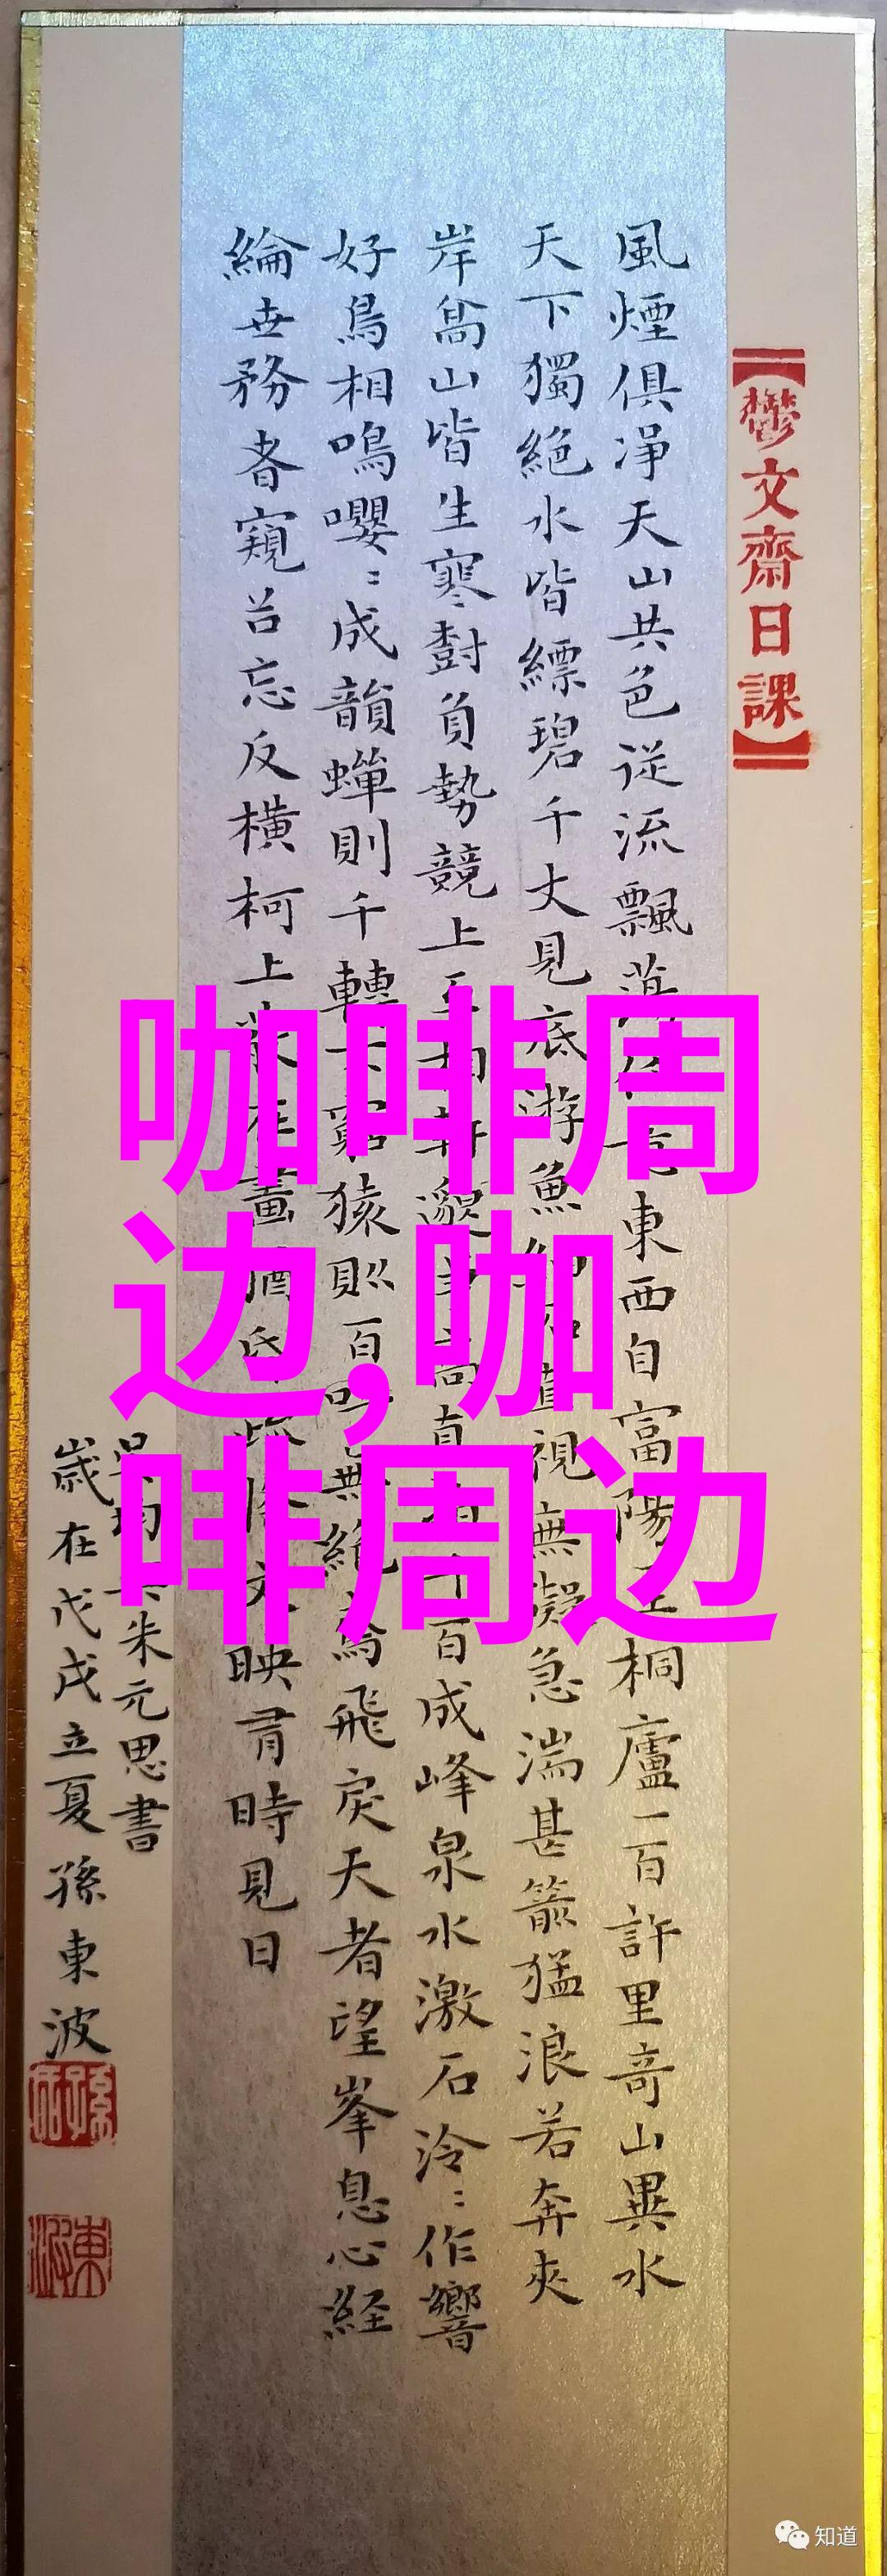 【鬱文齋日課】
風煙俱淨天山共色從流飄蕩東西自富陽至桐廬一百許里奇山異水
天下獨絕水皆縹碧千丈見底游魚細石直視無礙急湍甚箭猛浪若奔夾
岸高山皆生寒樹負勢競上互相軒邈爭高直指千百成峰泉水激石泠〻作響
好鳥相鳴嚶〻成韻蟬則千轉不窮猿則百叫無絕鳶飛戾天者望峯息心経
綸世務者窺谷忘反橫柯上蔽在晝猶昏疏條交映有時見日
吳均與朱元思書
歲在戊戌立夏孫東波
咖啡周
边,咖
啡周边
知道